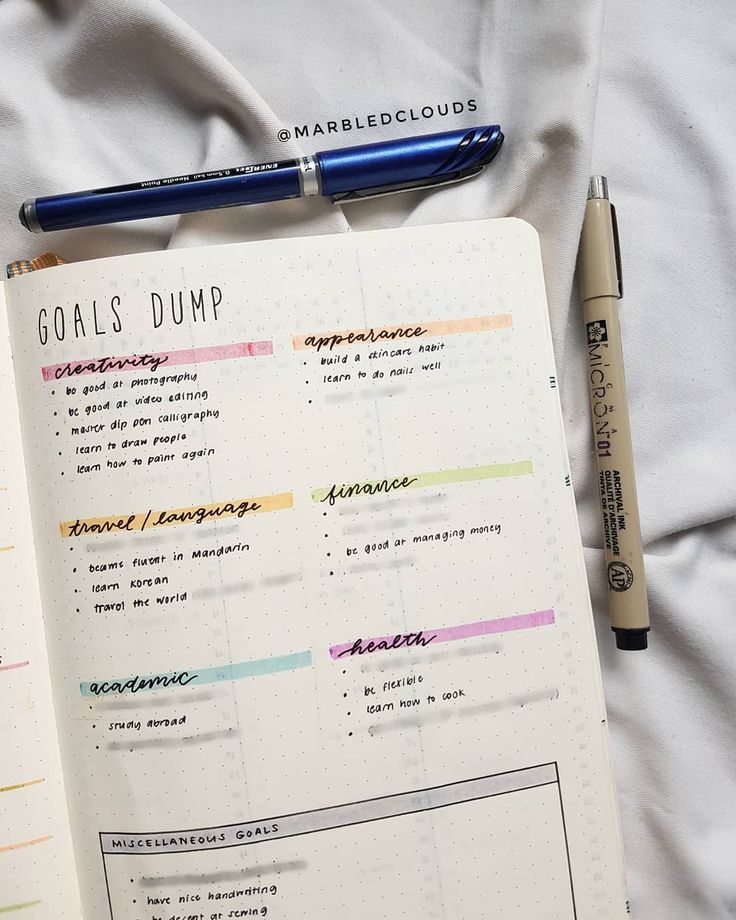 @MARBLEDCLOUDS
ENERGEL
0.5mm ball Needle Point
GOALS DUMP
creativity
• be good at photography
• be good at video editing
• master dip pen calligraphy
• learn to draw people
• learn how to paint again
appearance
• build a skincare habit
• learn to do nails well
travel / language
• became fluent in Mandarin
• learn Korean
• travel the world
finance
• be good at managing money
academic
• study abroad
health
• be flexible
• learn how to cook
MISCELLANEOUS GOALS
• have nice handwriting
be decent at sewing
PIGMA
MICRON 01
ARCHIVAL INK
QUALITÉ D'ARCHIVAGE
TINTA DE ARCHIVE
AP